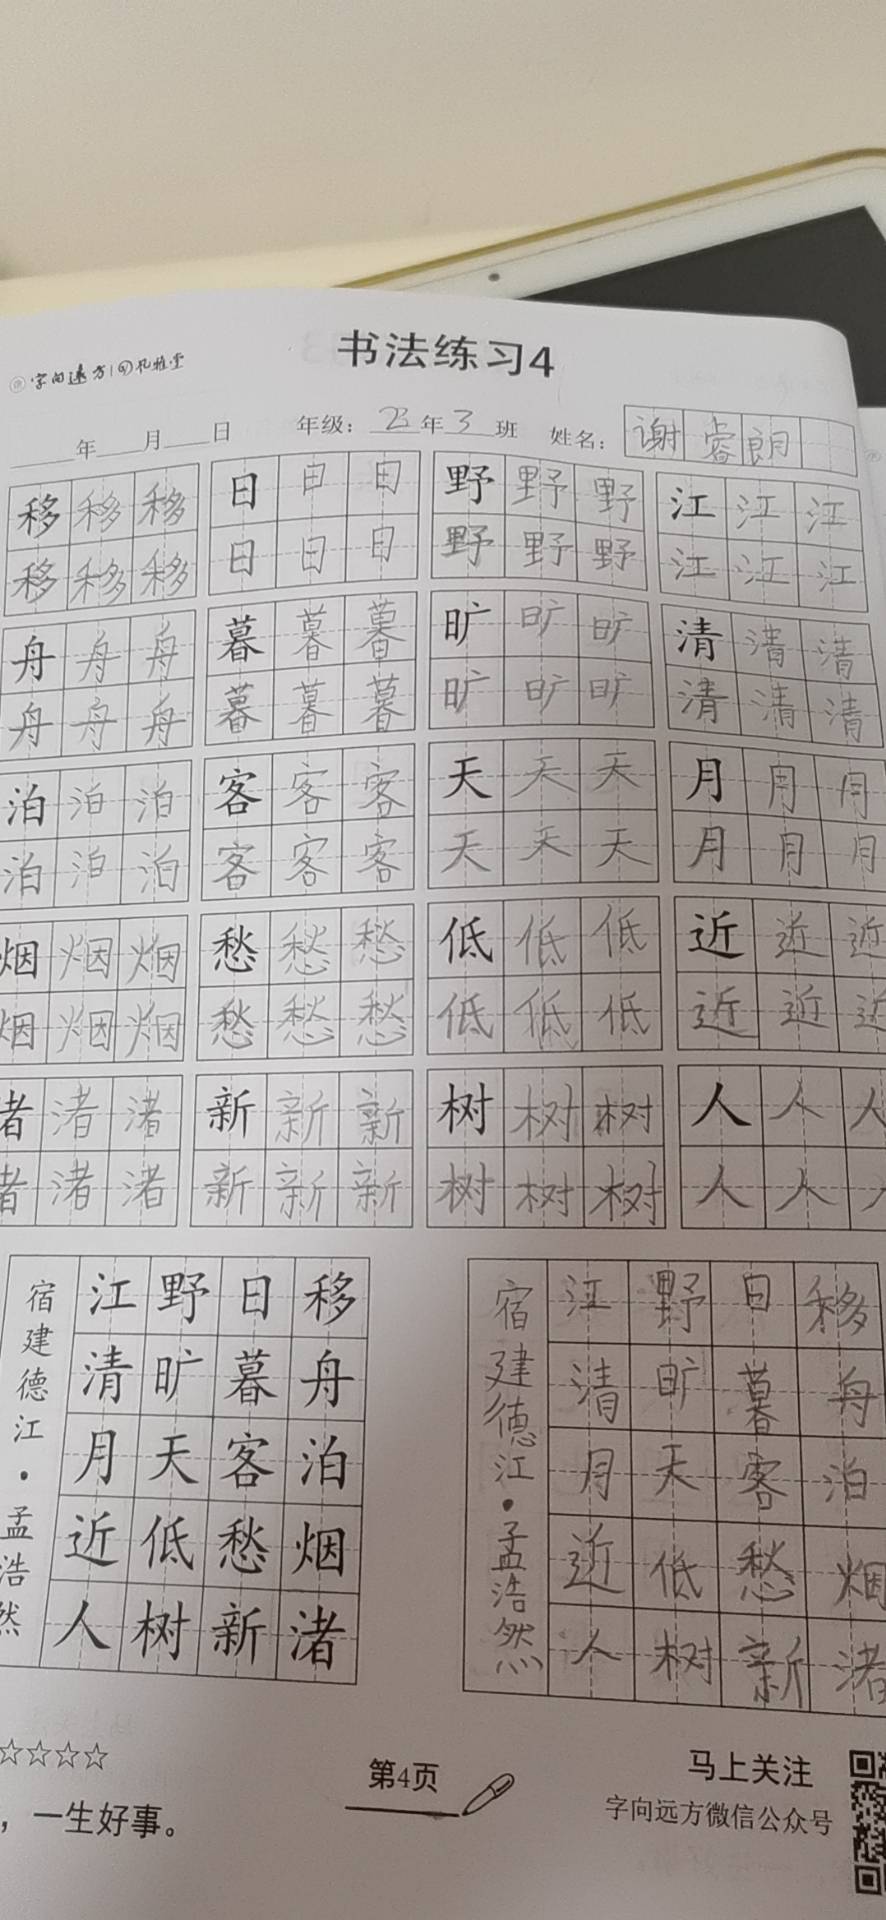 字向远方 礼雅堂
书法练习4
年 月 日 年级：23年3班 姓名：谢睿朗
移移移 日日日 野野野 江江江
移移移 日日日 野野野 江江江
舟舟舟 暮暮暮 旷旷旷 清清清
舟舟舟 暮暮暮 旷旷旷 清清清
泊泊泊 客客客 天天天 月月月
泊泊泊 客客客 天天天 月月月
烟烟烟 愁愁愁 低低低 近近近
烟烟烟 愁愁愁 低低低 近近近
渚渚渚 新新新 树树树 人人人
渚渚渚 新新新 树树树 人人人
移舟泊烟渚
日暮客愁新
野旷天低树
江清月近人
宿建德江·孟浩然
移舟泊烟渚
日暮客愁新
野旷天低树
江清月近人
宿建德江·孟浩然
☆☆☆☆
，一生好事。
第4页
马上关注
字向远方微信公众号